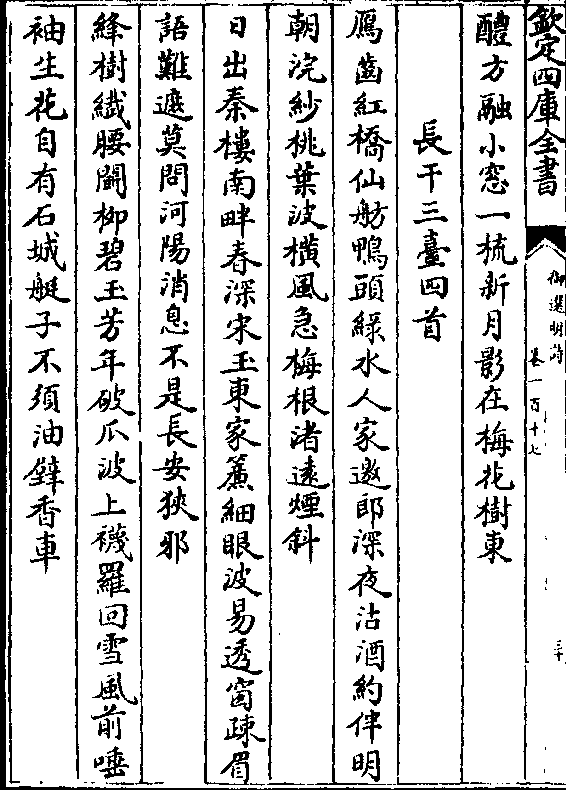 欽定四庫全書
御選明詩
卷一百十七
三十
醴方融小窓一梳新月影在梅花樹東
長干三臺四首
鴈齒紅橋仙舫鴨頭綠水人家邀郎深夜沽酒約伴明
朝浣紗桃葉波橫風急梅根渚遠煙斜
日出秦樓南畔春深宋玉東家簾細眼波易透窗疎眉
語難遮莫問河陽消息不是長安狹邪
絳樹纎腰鬭柳碧玉芳年破瓜波上襪羅回雪風前唾
袖生花自有石城艇子不須油壁香車